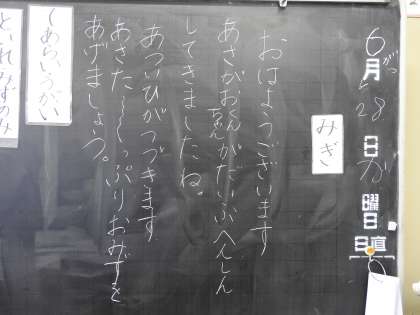 6月28日か曜日
日直
みぎ
おはようございます
あさがおくんちゃんがだいぶへんしん
してきましたね。
あついひがつづきます
あさた〜〜っぷりおみずを
あげましょう。
てあらいうがい
といれみずのみ